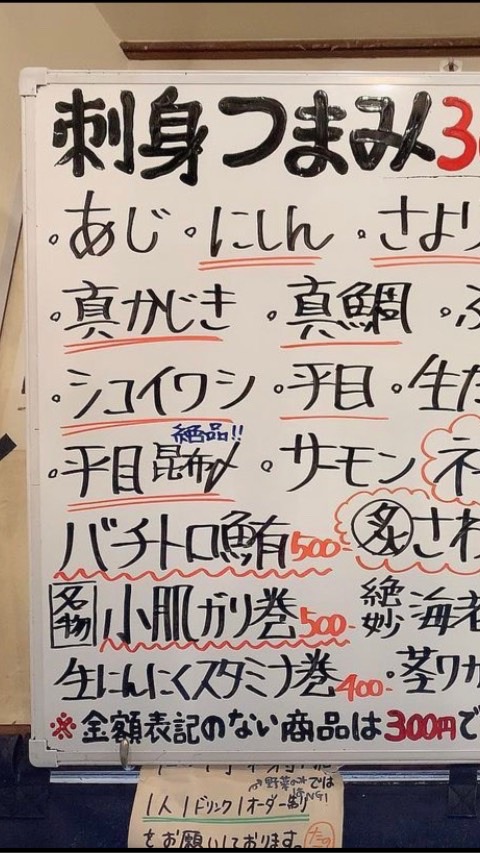 刺身つまみ3
・あじ ・にしん ・さより
・真かじき ・真鯛 ・ふ
・シコイワシ ・平目 ・生た
絶品!!
・平目昆布〆 ・サーモン ネ
バチトロ鮪500- 炙さわ
名物 小肌ガリ巻500- 絶妙 海老
生にんにくスタミナ巻400- ・茎ワカ
※金額表記のない商品は300円で
では
1人1ドリンク1オーダー制
をお願いしております。